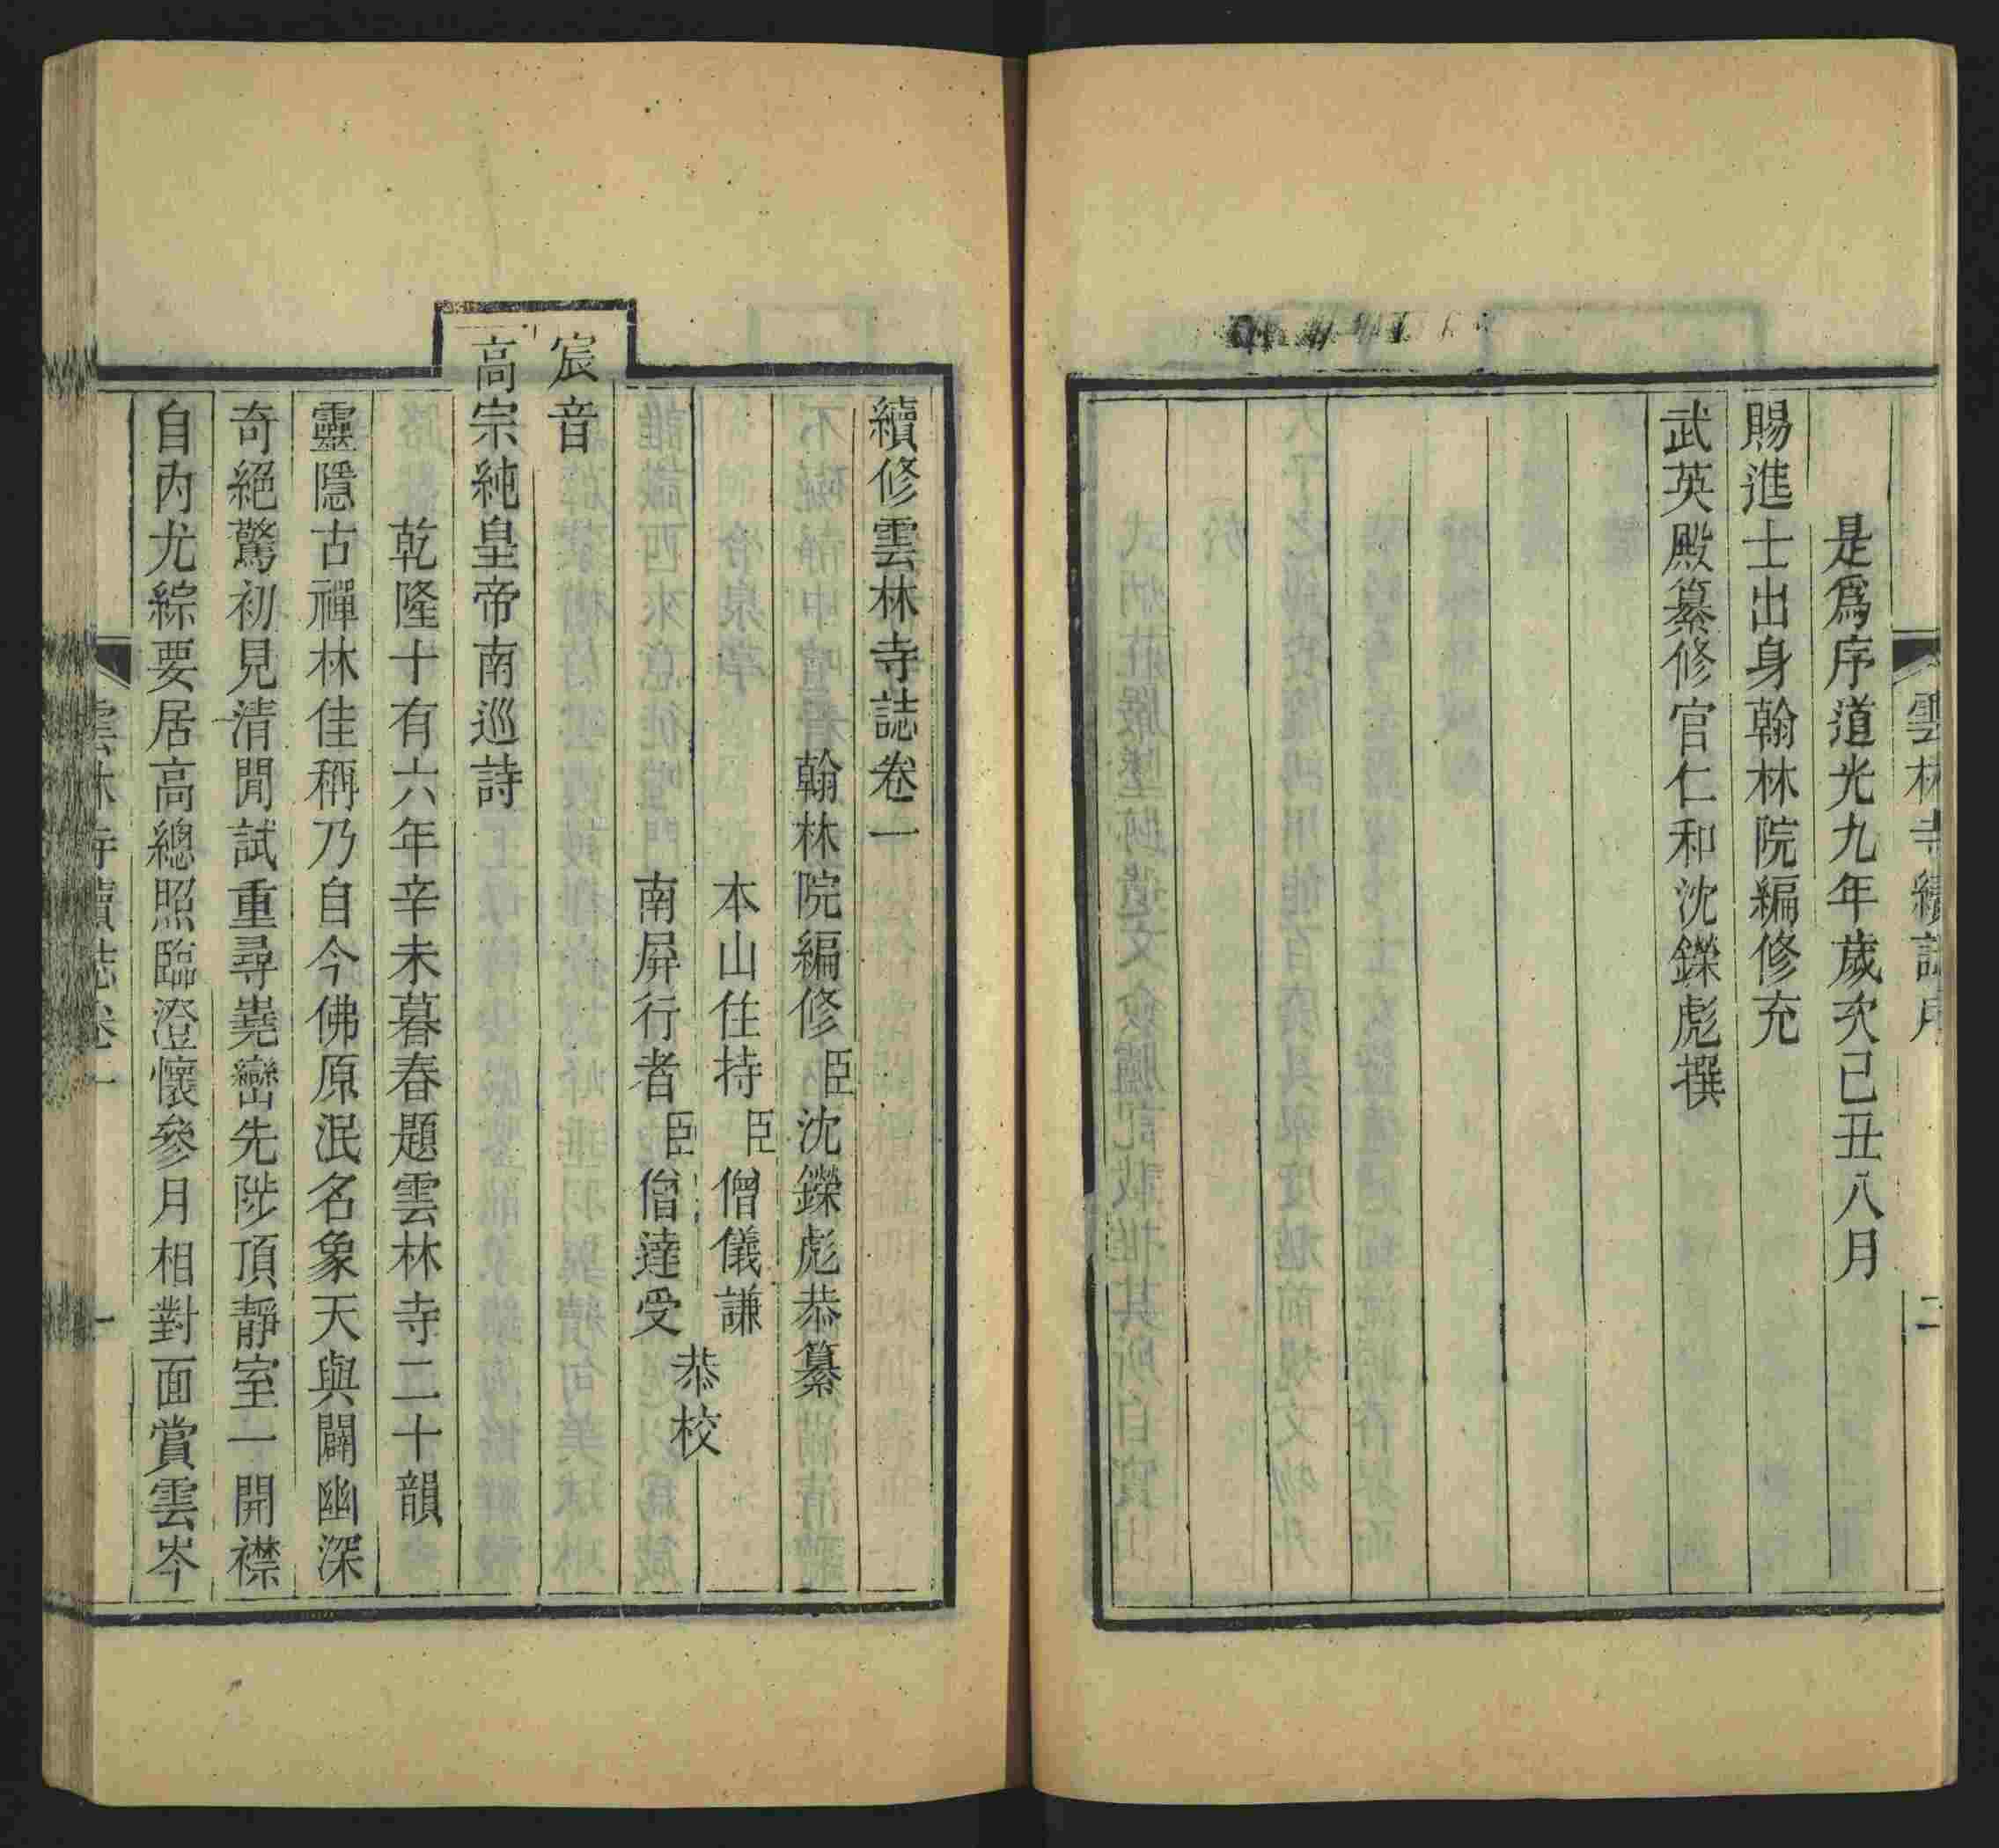 雲林寺續誌序
二
是爲序道光九年歲次己丑八月
賜進士出身翰林院編修充
武英殿纂修官仁和沈鑅彪撰
續修雲林寺誌卷一
翰林院編修臣沈鑅彪恭纂
本山住持臣僧儀謙
南屛行者臣僧達受
恭校
宸音
高宗純皇帝南巡詩
乾隆十有六年辛未暮春題雲林寺二十韻
靈隱古禪林佳稱乃自今佛原泯名象天與闢幽深
奇絕驚初見清閒試重尋嶤巒先陟頂靜室一開襟
自內尤綜要居高總照臨澄懷參月相對面賞雲岑
雲林寺續誌卷一
一